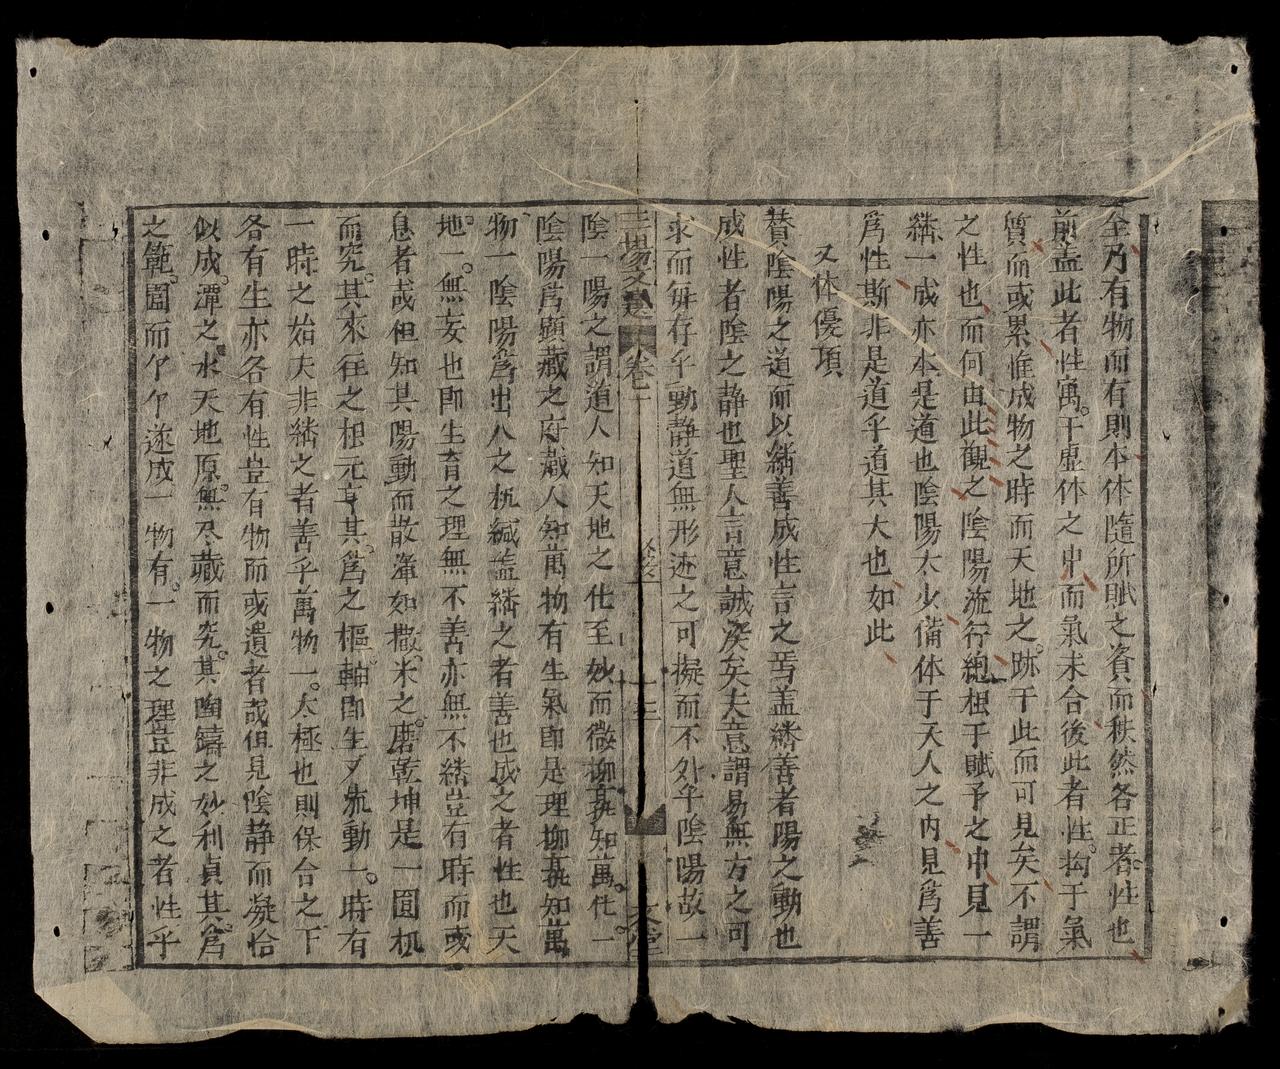 全乃有物而有則本体隨所賦之資而秩然各正者性也
前盖此者性寓于虛体之中而氣未合後此者性拘于氣
質而或累惟成物之時而天地之跡于此而可見矣不謂
之性也而何由此観之陰陽流行緫根于賦予之中見一
継一成亦本是道也陰陽太少備体于天人之内見爲善
爲性斯非是道乎道其大也如此
又体優項
賛陰陽之道而以継善成性言之焉盖継善者陽之動也
成性者陰之静也聖人言意誠深矣夫意謂易無方之可
求而每存乎動静道無形迹之可擬而不外乎陰陽故一
三場文選 卷之一 十三 文堂
陰一陽之謂道人知天地之化至妙而微柳孰知萬化一
陰陽爲顕藏之府哉人知萬物有生氣即是理柳孰知萬
物一陰陽爲出入之机緘盖継之者善也成之者性也天
地一無妄也即生育之理無不善亦無不継豈有時而或
息者哉但知其陽動而散渾如撒米之磨乾坤是一圓机
而究其來往之根元其爲之樞軸即生又㐬動一時有
一時之始夫非継之者善乎萬物一太極也則保合之下
各有生亦各有性豈有物而或遺者哉但見陰静而凝恰
似成潭之水天地原無尽藏而究其陶鑄之妙利貞其爲
之範圍而个个遂成一物有一物之理豈非成之者性乎